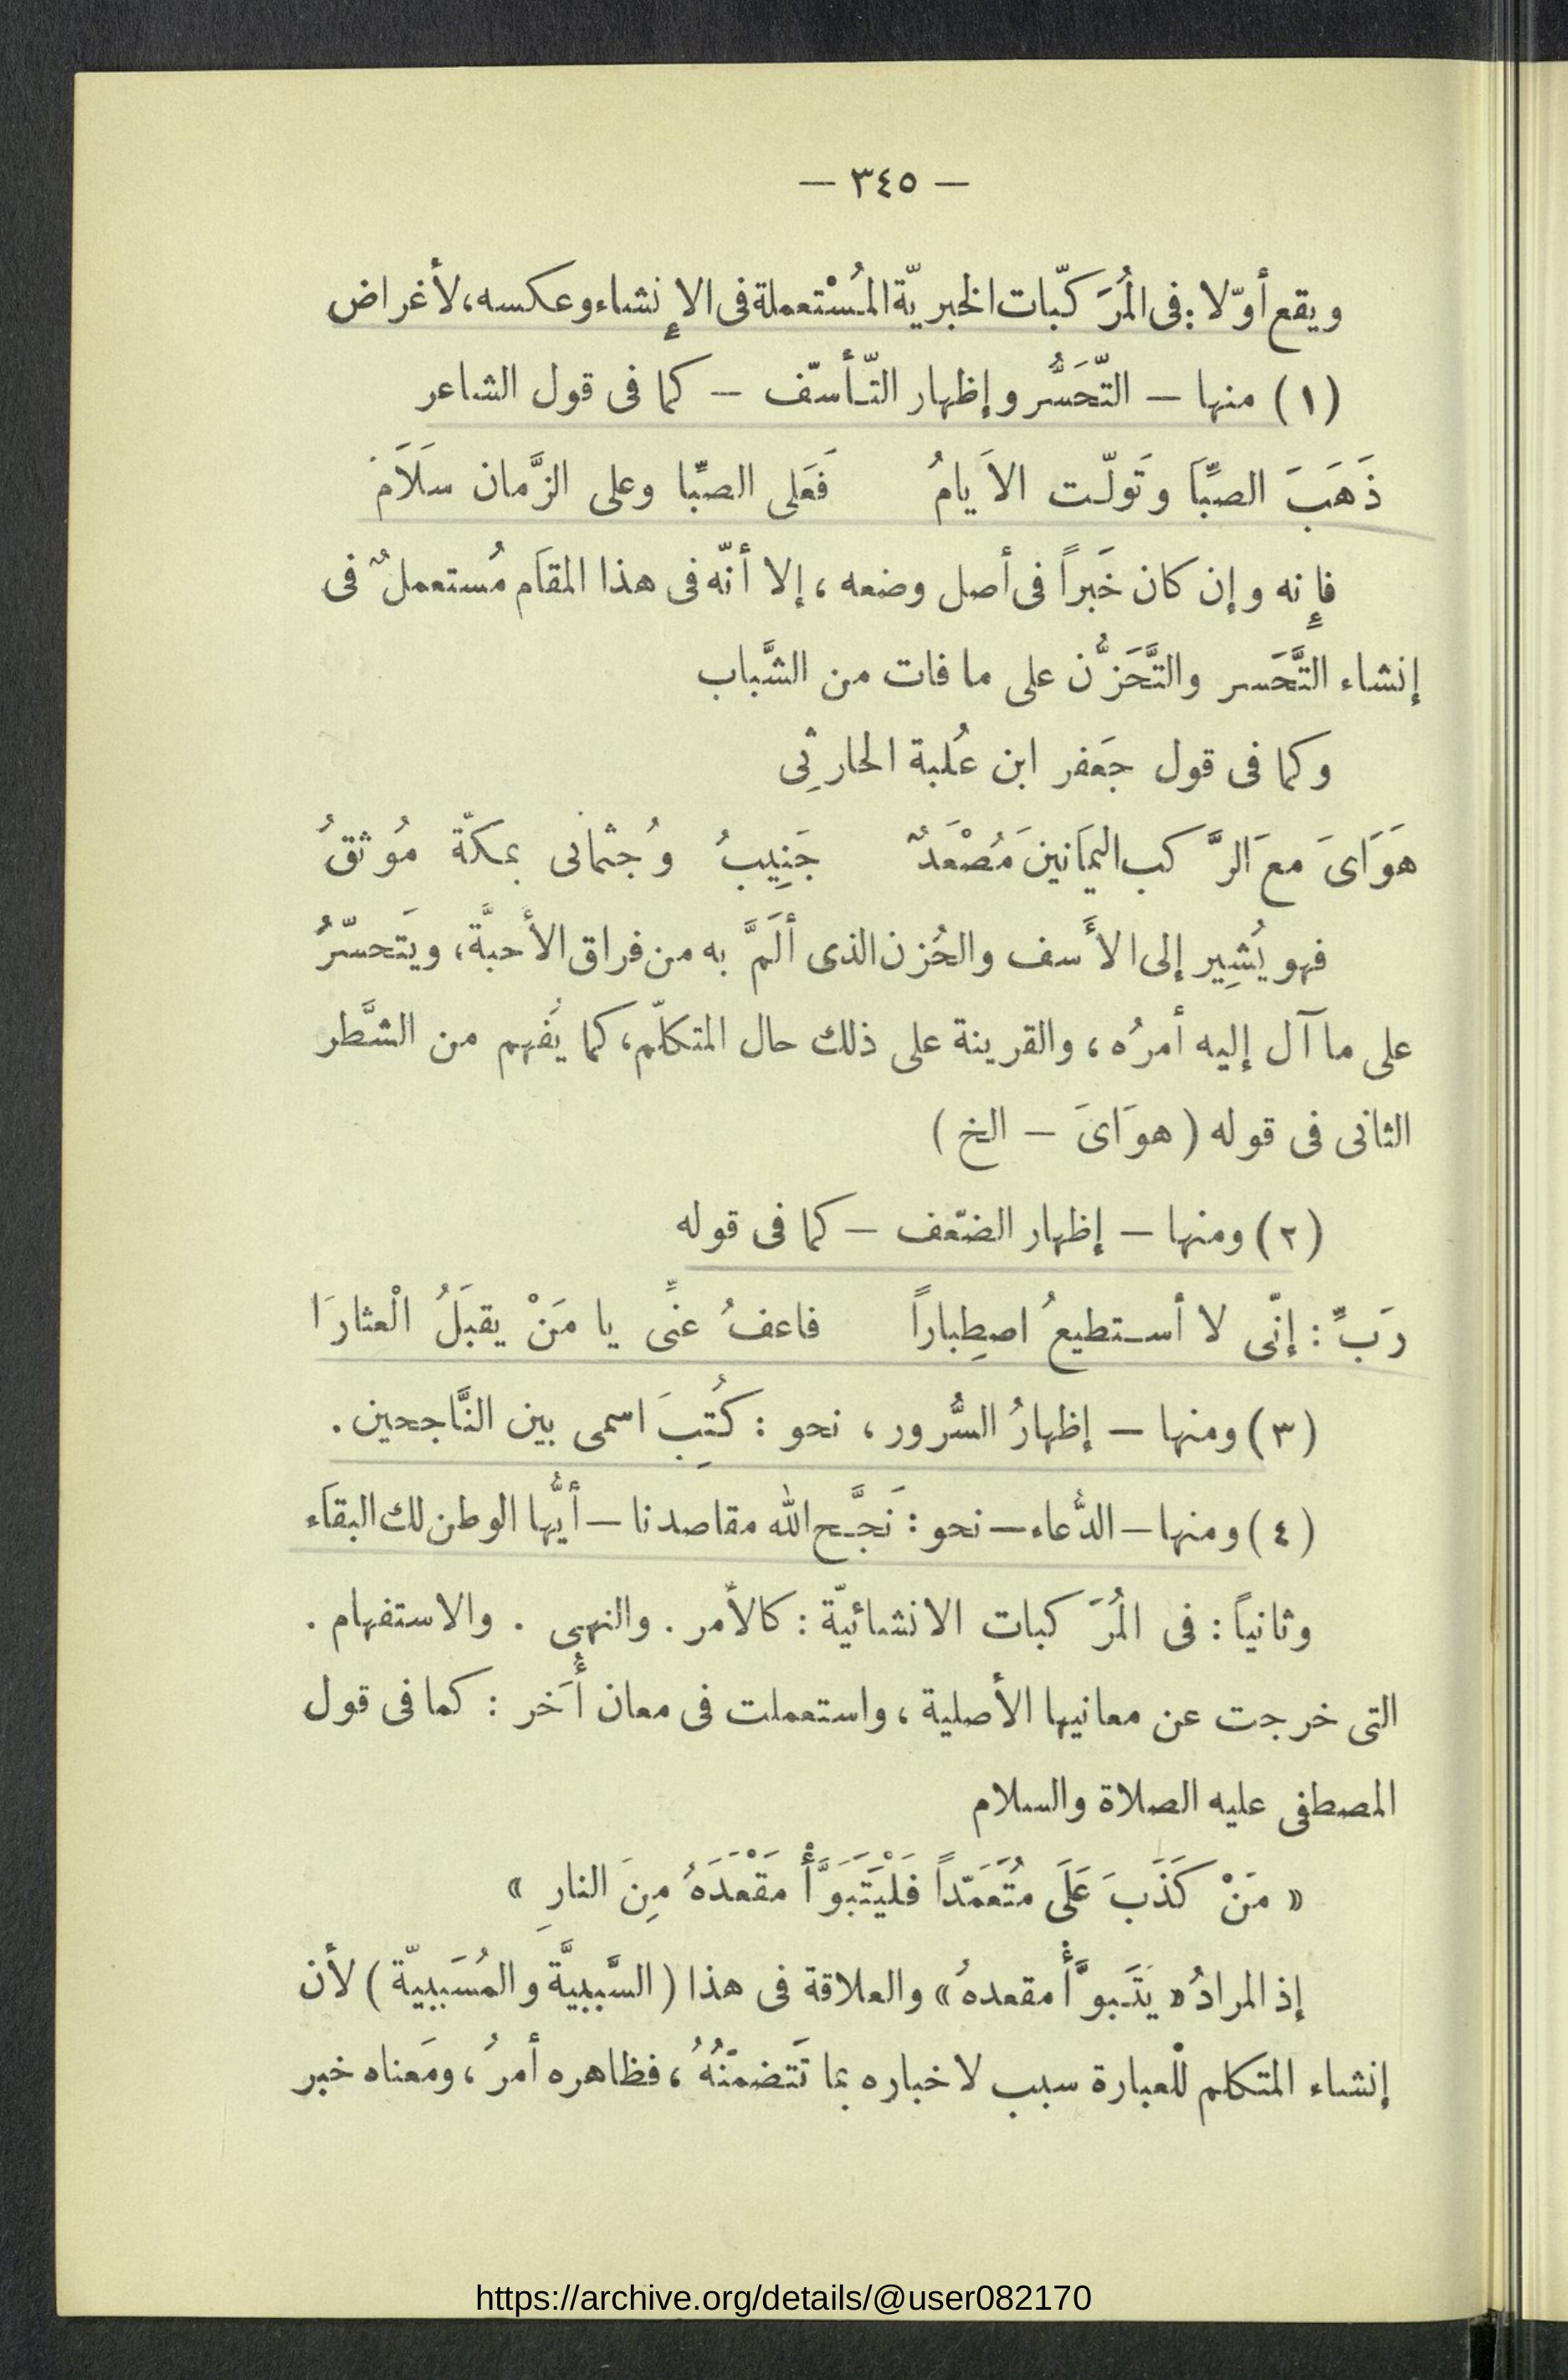 — ٣٤٥ —
ويقع أوّلا: فى المُرَكّبات الخبريّة المُسْتعملة فى الإِنشاء وعكسه، لأغراض
(١) منها — التّحَسُّر وإظهار التّأسّف — كما فى قول الشاعر
ذَهَبَ الصِّبَا وتَولّت الاَيامُ فَعَلى الصِّبا وعلى الزَّمان سَلاَم
فإِنه وإن كان خَبراً فى أصل وضعه ، إلا أنّه فى هذا المقاَم مُستعملٌ فى
إنشاء التَّحَسر والتَّحَزُّن على ما فات من الشَّباب
وكما فى قول جَعفر ابن عُلبة الحارثِى
هَوَاىَ معَ الرَّكب اليمَانينَ مُصْعَدٌ جَنِيبُ وجُثمانى بمكّة مُوثقُ
فهو يُشِير إلى الأَسف والحُزن الذى ألَمَّ به من فراق الأحبَّة، ويَتحسّرُ
على ما آل إليه أمرُه ، والقرينة على ذلك حال المتكلّم، كما يُفهم من الشَّطر
الثانى فى قوله ( هوَاىَ — الخ )
(٢) ومنها — إظهار الضّعف — كما فى قوله
رَبِّ : إنّى لا أستطيعُ اصطِباراً فاعفُ عنِّى يا مَنْ يقبَلُ الْعثارَا
(٣) ومنها — إظهارُ السُّرور ، نحو : كُتِبَ اسمى بين النَّاجحين.
(٤) ومنها — الدُّعاء — نحو : نَجَّح الله مقاصدنا — أيُّها الوطن لك البقاَء
وثانياً : فى المُرَكبات الانشائيّة : كالأمر . والنهى . والاستفهام .
التى خرجت عن معانيها الأصلية ، واستعملت فى معان أُخَر : كما فى قول
المصطفى عليه الصلاة والسلام
« مَنْ كَذَبَ عَلَى مُتَعَمّداً فَلْيَتَبَوَّأْ مَقْعَدَهُ مِنَ النارِ »
إذ المرادُ « يَتَبوَّأُ مقعدهُ » والعلاقة فى هذا ( السَّببيَّة والمُسَببيّة ) لأن
إنشاء المتكلم لْلعبارة سبب لاخباره بما تَتضمّنُهُ ، فظاهره أمرُ ، ومَعناه خبر
https://archive.org/details/@user082170